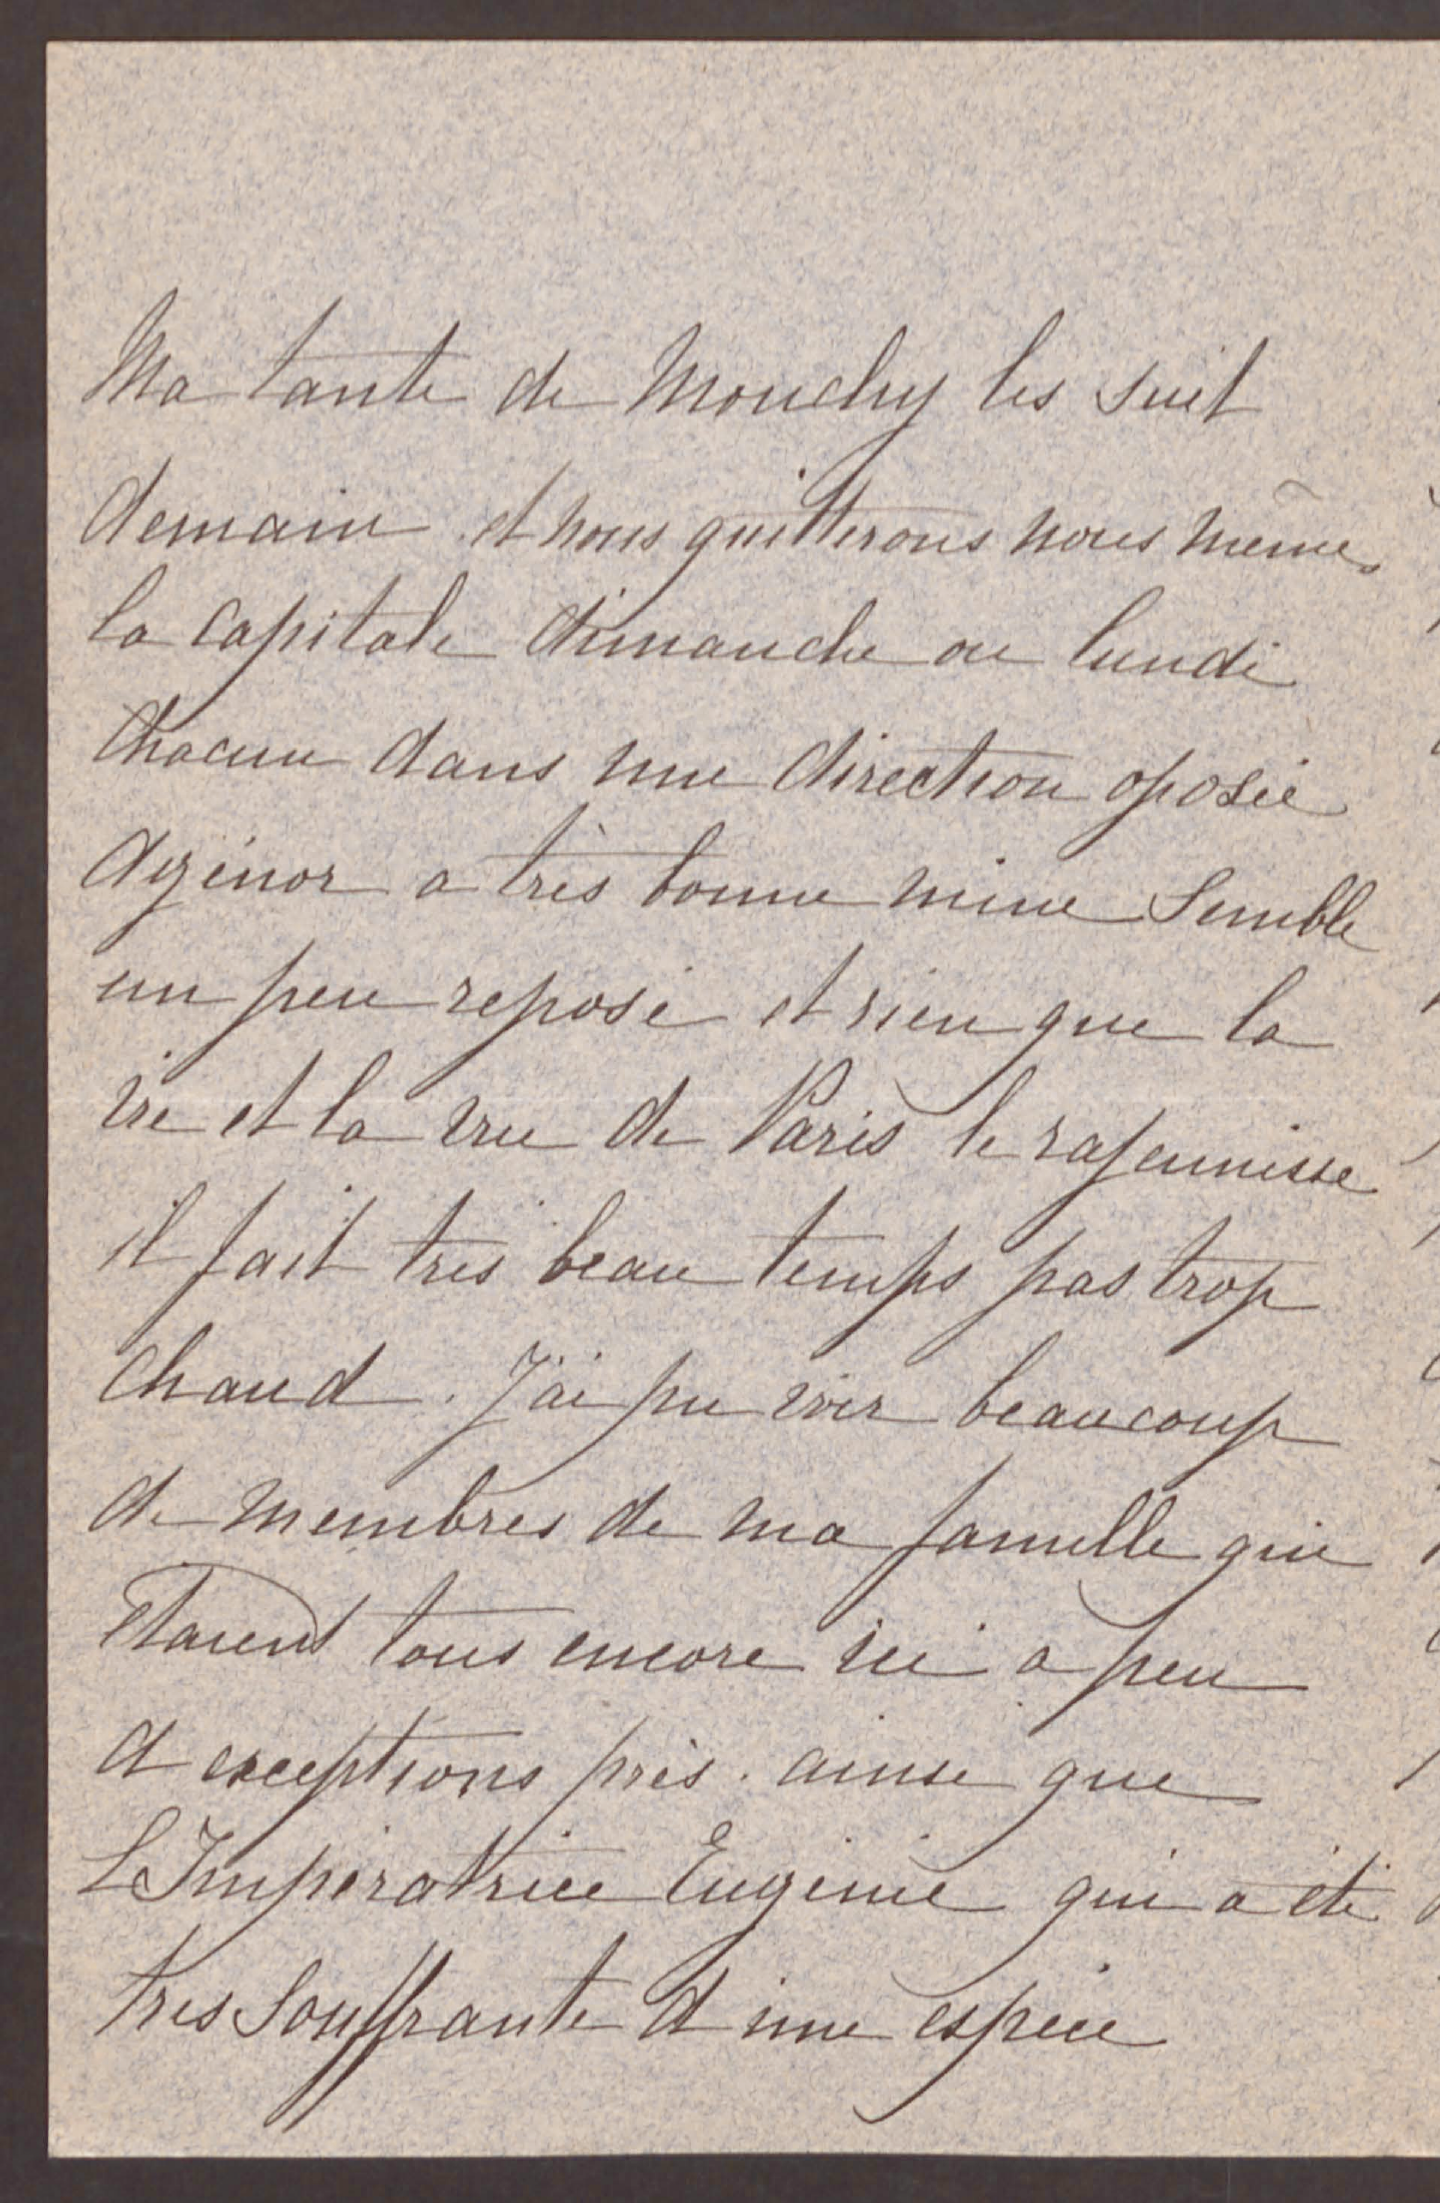 Ma tante de Mouchy les suit
demain et nous quitterons nous mêmes
la capitale dimanche ou lundi
Chacun dans une direction oposée
Agénor a très bonne mine Semble
un peu reposé et rien que la
vie et la vue de Paris le rajeunisse
il fait très beau temps pas trop
chaud. J'ai pu voir beaucoup
de membres de ma famille qui
Etaient tous encore ici a peu
d exceptions près. ainsi que
L'Impératrice Eugénie qui a été
très Souffrante d une espèce